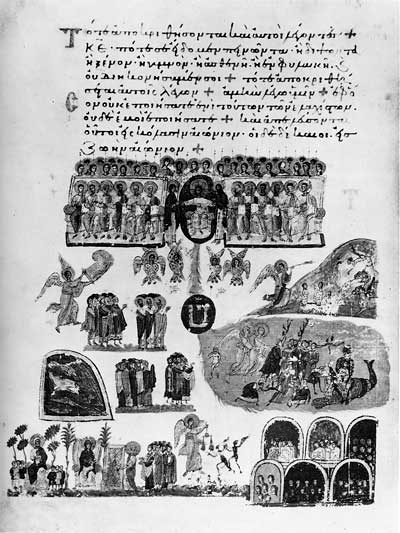 Τότε ἀποκριθήσονται καὶ αὐτοὶ λέγοντες· +
ΚΕ · πότε σε ἴδομεν πεινῶντα · ἢ διψῶντα
ἢ ξένον · ἢ γυμνόν · ἢ ἀσθενῆ · ἢ ἐν φυλακῆ ·
οὐ διηκονήσαμέν σοι + τότε ἀποκριθή
σεται αὐτοῖς λέγων + ἀμὴν λέγω ὑμῖν + ἐφ ὅ
σον οὐκ ἐποιήσατε ἑνὶ τούτων τῶν ἐλαχίστων ·
οὐδὲ ἐμοὶ ἐποιήσατε + καὶ ἀπελεύσονται
οὗτοι εἰς κόλασιν αἰώνιον · οἱ δὲ δίκαιοι εἰς
ζωὴν αἰώνιον · +